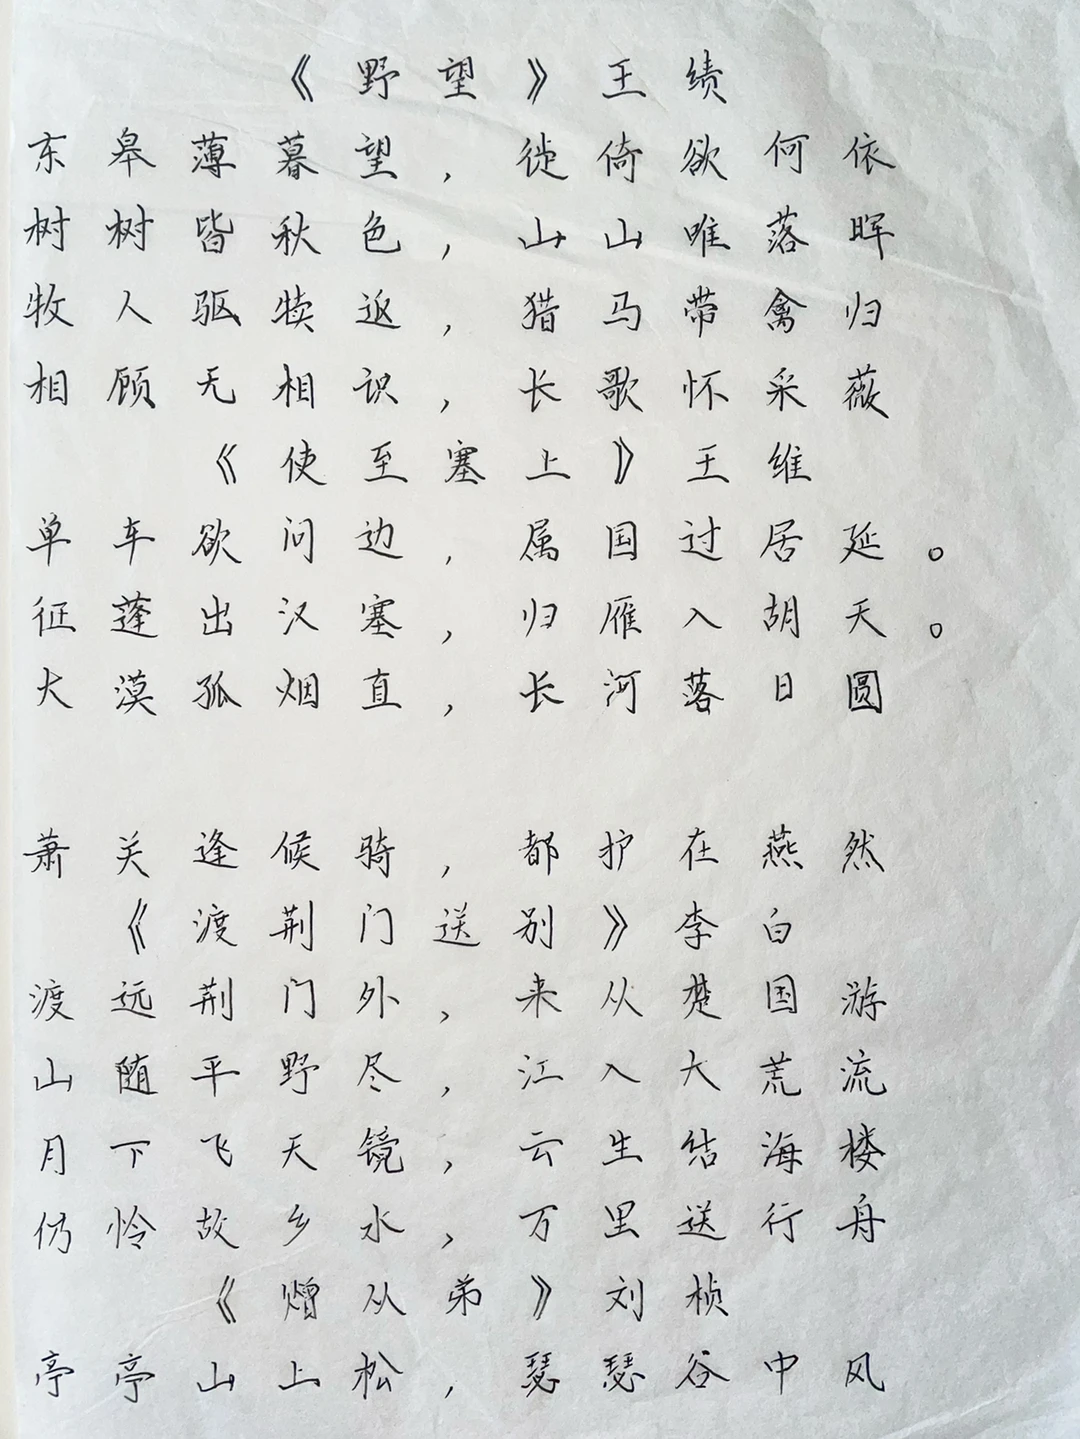 《野望》王绩
东皋薄暮望，徙倚欲何依
树树皆秋色，山山唯落晖
牧人驱犊返，猎马带禽归
相顾无相识，长歌怀采薇
《使至塞上》王维
单车欲问边，属国过居延。
征蓬出汉塞，归雁入胡天。
大漠孤烟直，长河落日圆
萧关逢候骑，都护在燕然
《渡荆门送别》李白
渡远荆门外，来从楚国游
山随平野尽，江入大荒流
月下飞天镜，云生结海楼
仍怜故乡水，万里送行舟
《赠从弟》刘桢
亭亭山上松，瑟瑟谷中风